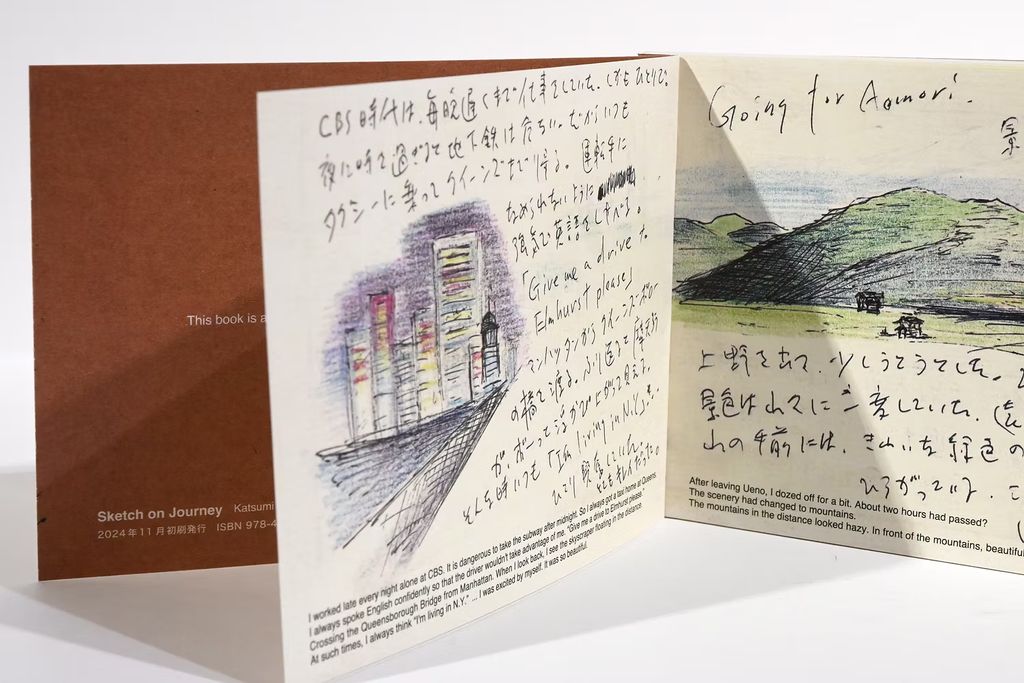 This book is a
Sketch on Journey Katsumi
2024年11月初刷発行 ISBN 978-4
CBS時代は、毎晩遅くまで仕事をしていた。しかもひとりで。
夜12時を過ぎると地下鉄は危ない。だからいつも
タクシーに乗ってクイーンズまで帰る。運転手に
なめられないように
強気で英語をしゃべる。
「Give me a drive to
Elmhurst please」
マンハッタンからクイーンズボロー
の橋を渡る。ふり返ると摩天楼
が、ボーっと浮かび上がって見えた。
そんな時いつも「I'm living in N.Y.」と、
ひとり興奮していた。
とてもきれいだった。
I worked late every night alone at CBS. It is dangerous to take the subway after midnight. So I always got a taxi home at Queens.
I always spoke English confidently so that the driver wouldn't take advantage of me. "Give me a drive to Elmhurst please."
Crossing the Queensborough Bridge from Manhattan. When I look back, I see the skyscraper floating in the distance.
At such times, I always think "I'm living in N.Y." ... I was excited by myself. It was so beautiful.
Going for Aomori.
景
上野を出て、少しうとうとした。
景色は山々に一変していた。
山の手前には、きれいな緑色の
ひろがっていた。
After leaving Ueno, I dozed off for a bit. About two hours had passed?
The scenery had changed to mountains.
The mountains in the distance looked hazy. In front of the mountains, beautiful